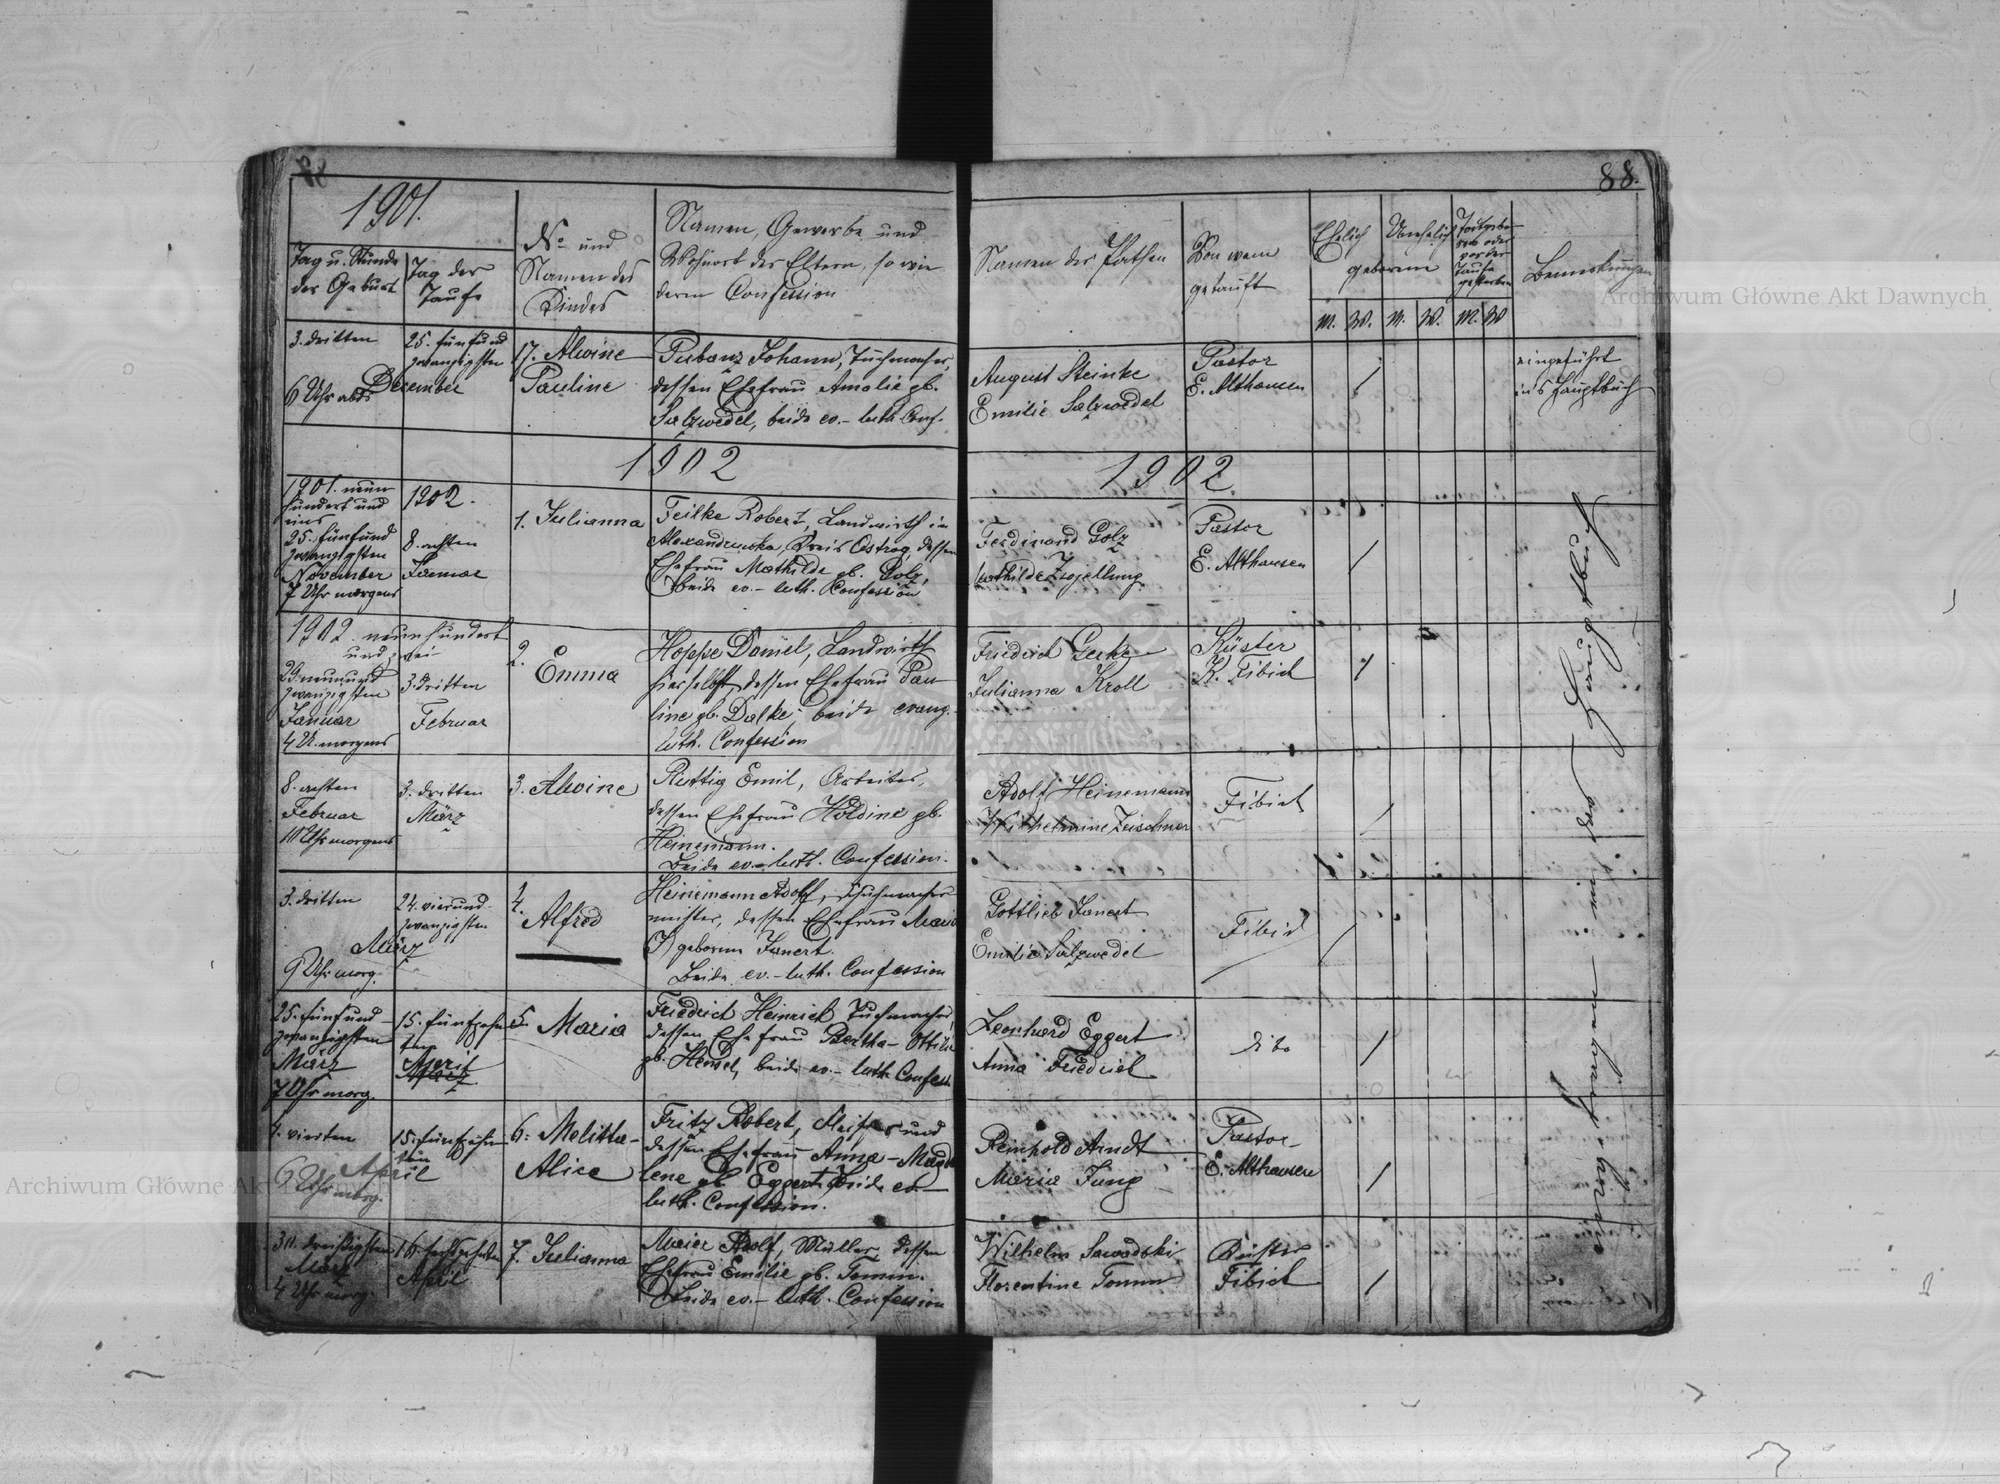 88.
1901.
Tag u. Stunde
der Geburt
Tag der
Taufe
No und
Namen des
Kindes
Namen, Gewerbe und
Wohnort der Eltern, so wie
deren Confession
Namen der Pathen
Von wem
getauft
Ehelich
Unehelich
geborene
Todtgebo-
rene oder
vor der
Taufe
gestorben
Bemerkungen
M. W. M. W. M. W
3. dritten
6 Uhr abds
25. fünfund
zwanzigsten
December
17. Alwine
Pauline
Johann, Tuchmacher,
dessen Ehefrau Amalie gb.
Salzwedel, beide ev.- luth. Conf.
August Steinke
Emilie Salzwedel
Pastor
E. Althausen
eingeführt
in's Hauptbuch
1902
1902.
1901. neun
hundert und
eins
25. fünfund
zwanzigsten
November
7 Uhr morgens
1902.
8. achten
Januar
1. Julianna
Teilke Robert, Landwirth in
Kreis Ostrog, dessen
Ehefrau Mathilde gb. Golz,
beide ev.- luth. Confession
Ferdinand Golz
Pastor
E. Althausen
1902. neunhundert
und zwei
29. neunund
zwanzigsten
Januar
4 U. morgens
3. dritten
Februar
2.
Emma
Hoppe Daniel, Landwirth
hierselbst, dessen Ehefrau Pau
line gb. Dalke, beide evang.
luth. Confession
Friedrich Gerke
Julianna Kroll
Küster
K. Fibich
8. achten
Februar
Uhr morgens
3. dritten
März
3. Alwine
Ruttig Emil, Arbeiter,
dessen Ehefrau Holdine gb.
Heinemann.
Beide ev.- luth. Confession.
Adolf Heinemann
Wilhelmine Zeischner
Fibich
3. dritten
9 Uhr morg.
24. vierund-
zwanzigsten
März
4.
Alfred
Heinemann Adolf, Tuchmacher
meister, dessen Ehefrau Maria
geborene Janert.
Beide ev.- luth. Confession
Gottlieb Janert
Emilie Salzwedel
Fibich
25. fünfund-
zwanzigsten
März
7 Uhr morg.
15. fünfzehn
ten
April
5. Maria
Friedrich Heinrich Tuchmacher,
dessen Ehefrau Bertha- Ottilie
gb. Hensel, beide ev.- luth. Confess.
Leonhard Eggert
Anna Friedrich
dito
4. vierten
6 Uhr morg.
15. fünfzehn
ten
April
6. Melitta-
Alice
Fritz Robert, und
dessen Ehefrau Anna- Magda
lene gb. Eggert, Beide ev.-
luth. Confession.
Reinhold Arndt
Maria Jung
Pastor
E. Althausen
30. dreißigsten
März
4 Uhr morg.
16. sechszehnten
April
7. Julianna
Maier Adolf, Müller, dessen
Ehefrau Emilie gb. Tomm.
Beide ev.- luth. Confession
Wilhelm Sawadski
Florentine Tomm
Küster
Fibich
eingetragen in das Hauptbuch
Archiwum Główne Akt Dawnych
Archiwum Główne Akt Dawnych